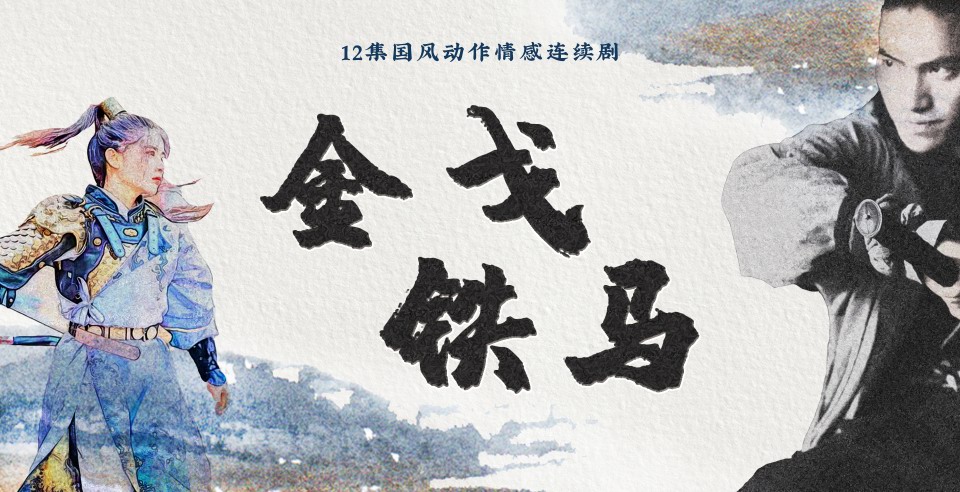 12集国风动作情感连续剧
金戈
铁马